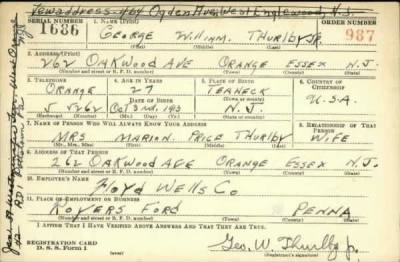 New address: 464 Ogden Ave, West Englewood, N.J.
SERIAL NUMBER 1. NAME (Print) ORDER NUMBER
1686 GEORGE WILLIAM THURLBY JR. 987
(First) (Middle) (Last)
2. ADDRESS (Print)
262 OAKWOOD AVE ORANGE ESSEX N.J.
(Number and street or R. F. D. number) (Town) (County) (State)
3. TELEPHONE 4. AGE IN YEARS 5. PLACE OF BIRTH 6. COUNTRY OF CITIZENSHIP
ORANGE 27 TEANECK
DATE OF BIRTH (Town or county) U.S.A.
5 5262 Oct 3rd 1913 N.J.
(Exchange) (Number) (Mo.) (Day) (Yr.) (State or country)
7. NAME OF PERSON WHO WILL ALWAYS KNOW YOUR ADDRESS 8. RELATIONSHIP OF THAT PERSON
MRS MARION PRICE THURLBY WIFE
(Mr., Mrs., Miss) (First) (Middle) (Last)
9. ADDRESS OF THAT PERSON
262 OAKWOOD AVE ORANGE ESSEX N.J.
(Number and street or R. F. D. number) (Town) (County) (State)
10. EMPLOYER'S NAME
Floyd Wells Co
11. PLACE OF EMPLOYMENT OR BUSINESS
ROYERS FORD PENNA
(Number and street or R. F. D. number) (Town) (County) (State)
I AFFIRM THAT I HAVE VERIFIED ABOVE ANSWERS AND THAT THEY ARE TRUE.
REGISTRATION CARD
D. S. S. Form 1
Geo. W. Thurlby Jr.
(Registrant's signature)